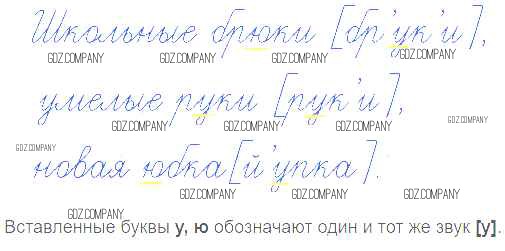 Школьные брюки [бр'ук'и],
GDZ.COMPANY GDZ.COMPANY GDZ.COMPANY GDZ.COMPANY
умелые руки [рук'и],
GDZ.COMPANY GDZ.COMPANY GDZ.COMPANY GDZ.COMPANY
GDZ.COMPANY
новая юбка [й'упка].
GDZ.COMPANY GDZ.COMPANY GDZ.COMPANY
GDZ.COMPANY
Вставленные буквы у, ю обозначают один и тот же звук [у].